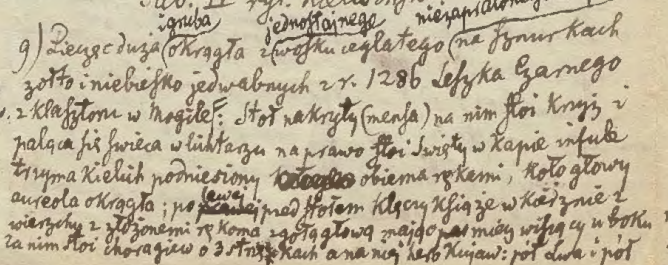 Tab. II
i gruba jednostajnego
9) Pieczęć duża okrągła z wosku ceglatego (na sznurkach
żółto i niebiesko jedwabnych z r. 1286 Leszka Czarnego
z klasztoru w Mogile: Stół nakryty (mensa) na nim stoi krzyż i
paląca się świeca w lichtarzu na prawo stoi święty w kapie infule
trzyma kielich podniesiony obiema rękami, koło głowy
aureola okrągła; po lewej przed stołem klęczy książe w
wierzchy z złożonemi rękoma z gołą głową mając miecz wiszący u boku
za nim stoi chorągiew o 3 kach a na niej herb Kujaw: pół Lwa i pół